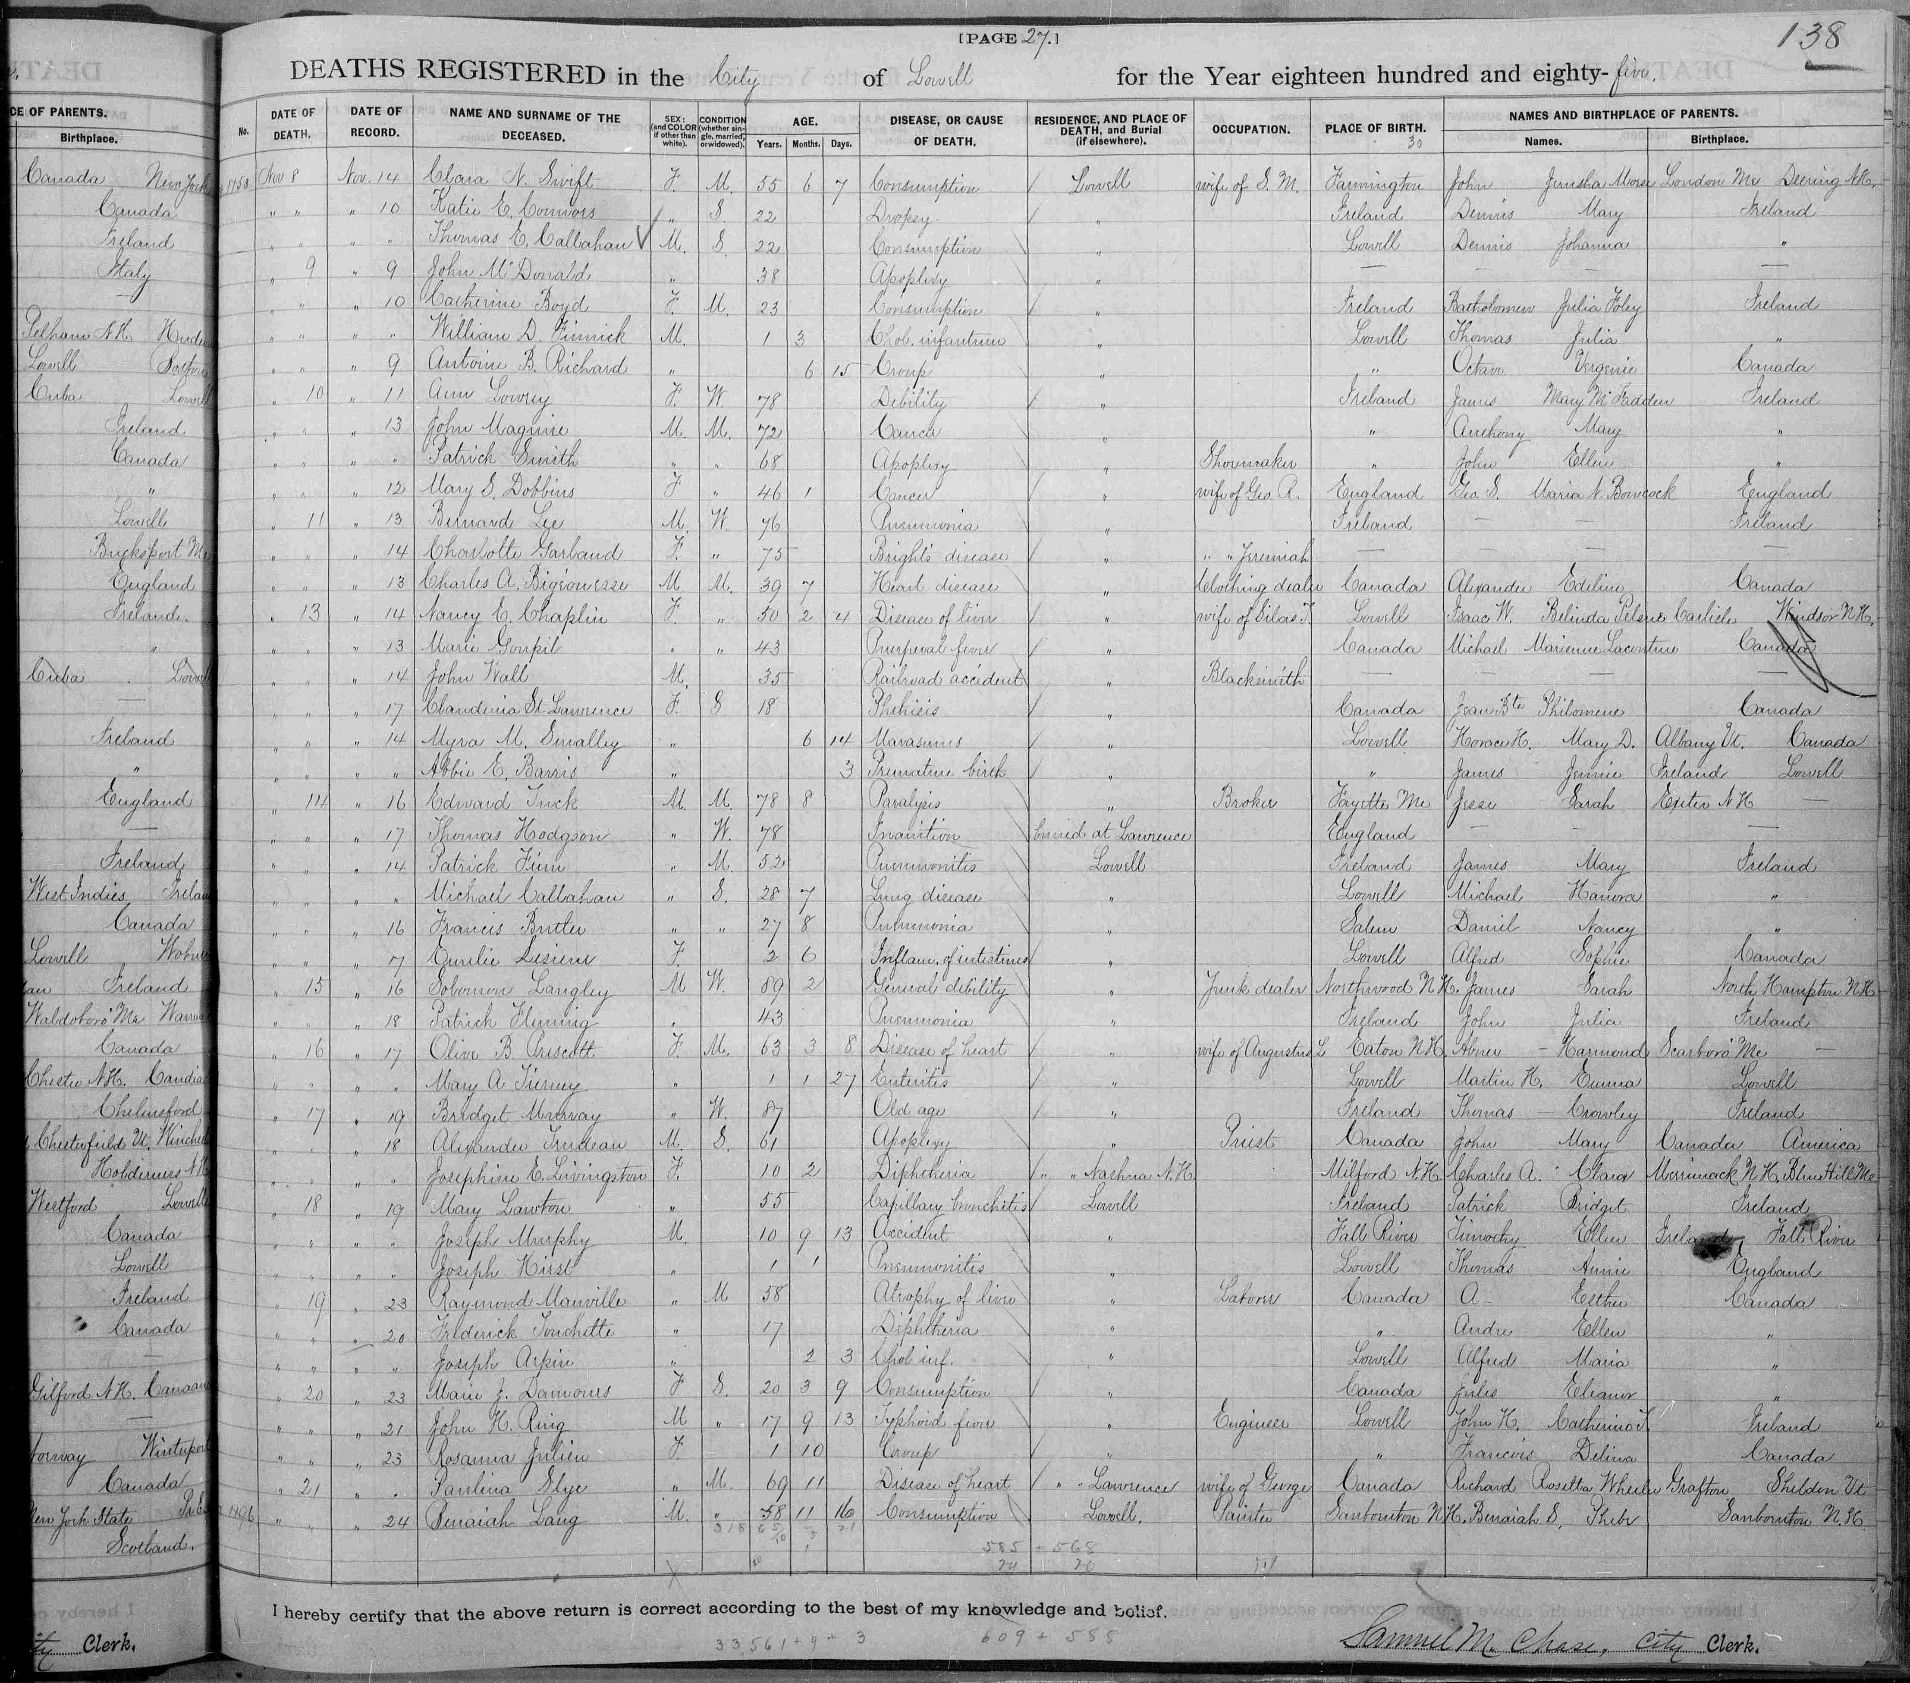 [PAGE 27.]
138
DEATHS REGISTERED in the City of Lowell for the Year eighteen hundred and eighty-five.
CE OF PARENTS.
Birthplace.
No. DATE OF DEATH. DATE OF RECORD. NAME AND SURNAME OF THE DECEASED. SEX: (and COLOR if other than white). CONDITION (whether single, married, or widowed). AGE. Years. Months. Days. DISEASE, OR CAUSE OF DEATH. RESIDENCE, AND PLACE OF DEATH, and Burial (if elsewhere). OCCUPATION. PLACE OF BIRTH. NAMES AND BIRTHPLACE OF PARENTS. Names. Birthplace.
30
Canada New York 1153 Nov 8 Nov. 14 Clara N. Swift F. M. 55 6 7 Consumption / Lowell wife of S. M. Farmington John Jerusha Morse London Me Deering N.H.
Canada " " " 10 Katie E. Connors " S. 22 Dropsy / " Ireland Dennis Mary Ireland
Ireland " " " " Thomas E. Callahan M. S. 22 Consumption " Lowell Dennis Johanna "
Italy " 9 " 9 John McDonald " 38 Apoplexy / " — — —
— " " " 10 Catherine Boyd F. M. 23 Consumption / " Ireland Bartholomew Julia Foley Ireland
Pelham N.H. " " " " William D. Finnick M. 1 3 Chol. infantum " Lowell Thomas Julia "
Lowell " " " 9 Antoine B. Richard " 6 15 Croup " " Octave Vergenie Canada
Cuba Lowell " 10 " 11 Ann Lowrey F. W. 78 Debility / " Ireland James Mary McFadden Ireland
Ireland " " " 13 John Maguire M. M. 72 Cancer " " Anthony Mary "
Canada " " " " Patrick Smith " " 68 Apoplexy " Shoemaker " John Ellen "
" " " " 12 Mary S. Dobbins F " 46 1 Cancer / " wife of Geo. R. England Geo. S. Maria N. Bowcock England
Lowell " 11 " 13 Bernard Lee M. W. 76 Pneumonia " Ireland — — Ireland
Bucksport Me " " " 14 Charlotte Garland F. " 75 Bright's disease / " " " Jeremiah — — —
England " " " 13 Charles A. M. M. 39 7 Heart disease " Clothing dealer Canada Alexander Edeline Canada
Ireland. " 13 " 14 Nancy E. Chaplin F. " 50 2 4 Disease of liver / " wife of Silas T. Lowell Isaac W. Belinda Carlisle Windsor N.H.
" " " " 13 Marie Goupil " " 43 Puerperal fever / " Canada Michael Marienne Canada
Cuba Lowell " " " 14 John Wall M. 35 Railroad accident " Blacksmith — — — —
— " " " 17 Claudinia St Lawrence F. S 18 Phthisis / " Canada Jean Bte Philomene Canada
Ireland " " " 14 Myra M. Smalley " 6 14 Marasmus / " Lowell Horace H. Mary D. Albany Vt. Canada
" " " " " Abbie E. Barris " 3 Premature birth / " " James Jennie Ireland Lowell
England " 14 " 16 Edward Tuck M. M. 78 8 Paralysis " Broker Fayette Me Jesse Sarah Exeter N.H. —
— " " " 17 Thomas Hodgson " W. 78 Inanition buried at Lawrence England — — —
Ireland " " " 14 Patrick Finn " M. 52 Pneumonitis Lowell Ireland James Mary Ireland
West Indies Ireland " " " " Michael Callahan " S. 28 7 Lung disease " Lowell Michael Hanora "
Canada " " " 16 Francis Butler " " 27 8 Pneumonia " Salem Daniel Nancy "
Lowell Woburn " " " 7 Emilie Lisieur F. 2 6 Inflam. of intestines / " Lowell Alfred Sophie Canada
Ireland " 15 " 16 Solomon Langley M W. 89 2 General debility " Junk dealer Northwood N.H. James Sarah North Hampton N.H
Waldoboro' Me " " " 18 Patrick Fleming " 43 Pneumonia " Ireland John Julia Ireland
Canada " 16 " 17 Olive B. Prescott F. M. 63 3 8 Disease of heart / " wife of Augustus L Eaton N.H. Abner — Harmond Scarboro' Me —
Chester N.H. Candia " " " " Mary A Tierney " 1 1 27 Enteritis / " Lowell Martin H. Emma Lowell
Chelmsford " 17 " 19 Bridget Murray " W. 87 Old age / " Ireland Thomas — Crowley Ireland
Chesterfield Vt. " " " 18 Alexander Trudeau M. S. 61 Apoplexy " Priest Canada John Mary Canada America
Holderness N.H " " " " Josephine E. Livingston F. 10 2 Diphtheria / " " Nashua N.H. Milford N.H. Charles A. Clara Merrimack N.H. Blue Hill Me
Westford Lowell " 18 " 19 Mary Lawton " 55 Capillary bronchitis / Lowell Ireland Patrick Bridget Ireland
Canada " " " " Joseph Murphy M. 10 9 13 Accident " Fall River Timothy Ellen Ireland Fall River
Lowell " " " " Joseph Hirst " 1 1 Pneumonitis " Lowell Thomas Annie England
Ireland " 19 " 23 Raymond Manville " M 58 Atrophy of liver " Laborer Canada A— Esther Canada
Canada " " " 20 Frederick Touchette " 17 Diphtheria " " Andre Ellen "
— " " " " Joseph Arpin " 2 3 Chol inf. " Lowell Alfred Maria "
Gilford N.H. Canaan " 20 " 23 Marie J. Damours F S. 20 3 9 Consumption / " Canada Jules Eleanor "
— " " " 21 John H. Ring M " 17 9 13 Typhoid fever " Engineer Lowell John H. Catherine T. Ireland
Norway Winterport " " " 23 Rosanna Julien F. 1 10 Croup / " " Francois Delina Canada
Canada " 21 " " Paulina Slye " M. 69 11 Disease of heart / " " Lawrence wife of George Canada Richard Rosetta Wheeler Grafton Sheldon Vt
New York State 1196 " " " 24 Benaiah Lang M. " 58 11 16 Consumption Lowell. Painter Sanbornton N.H. Benaiah S. Phebe Sanbornton N.H.
Scotland.
585 + 568
24 20
I hereby certify that the above return is correct according to the best of my knowledge and belief.
33561 + 9 + 3 609 + 588
City Clerk. Samuel M. Chase, City Clerk.